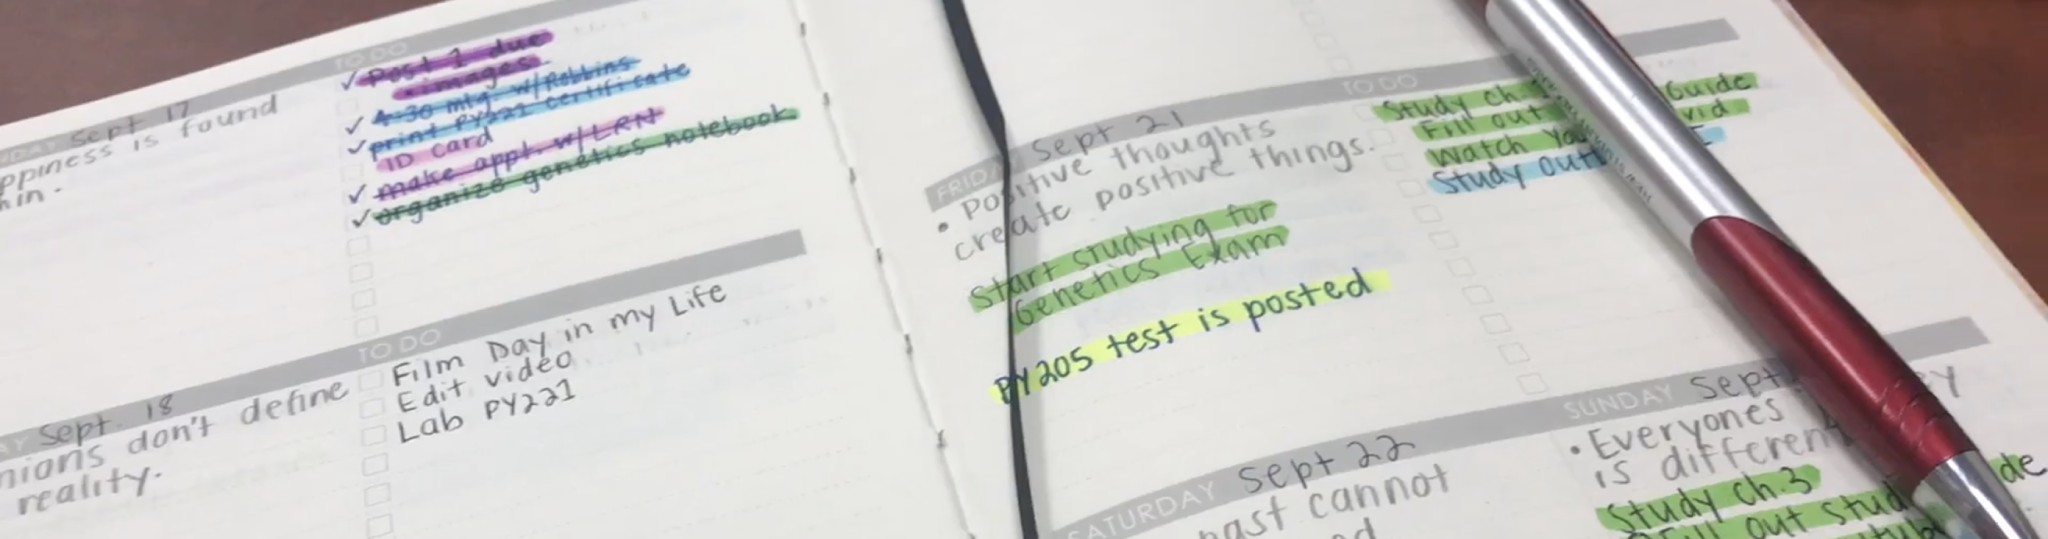 Sept 17
ppiness is found
hin.
TO DO
Post 1 due
• images
4:30 mtg. w/Robbins
print PY221 certificate
ID card
make appt. w/LRN
organize genetics notebook
AY Sept. 18
nions don't define
reality.
TO DO
Film Day in my Life
Edit video
Lab PY221
FRIDAY Sept 21
• Positive thoughts
create positive things.
Start studying for
Genetics Exam
PY205 test is posted
TO DO
Study ch. Guide
Fill out vid
Watch
Study
SATURDAY Sept 22
past cannot
SUNDAY Sept
• Everyones
is different
Study ch.3
Fill out